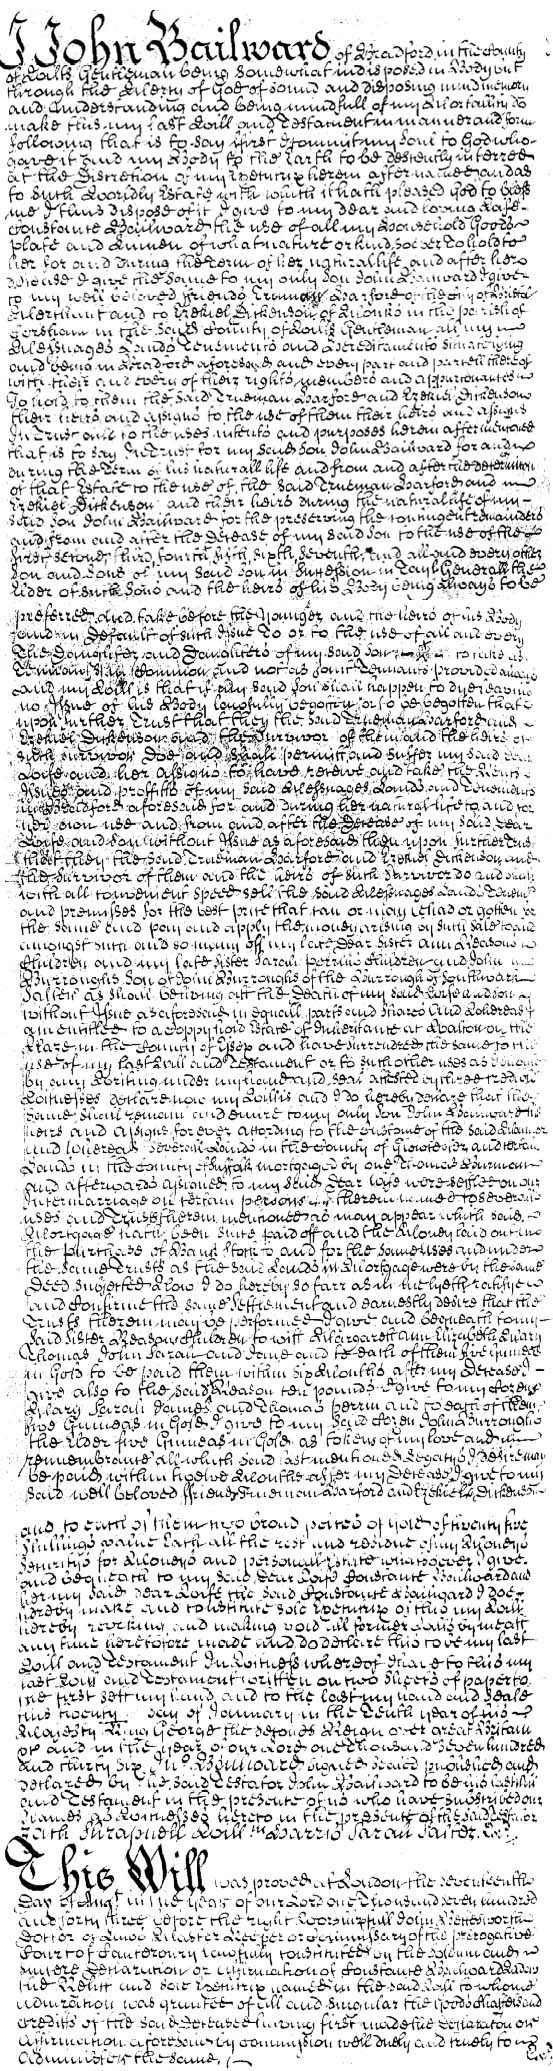 I John Bailward of Bradford in the County
of Wilts Gentleman being Somewhat indisposed in Body but
through the Mercy of God of sound and disposing mind memory
and Understanding and being mindfull of my Mortality do
make this my last Will and Testament in manner and form
following that is to say first I Commit my Soul to God who
gave it and my Body to the Earth to be decently interred
at the Discretion of my Executrix herein after named and as
to such Worldly Estate with which it hath pleased God to bless
me I thus dispose of it I give to my dear and loving Wife
Constante Bailward the use of all my Household Goods
Plate and Linnen of what nature or kind soever To hold to
her for and during the Term of her natural life and after her
decease I give the same to my only son John Bailward I give
to my well beloved ffriends Trueman Harford of the City of Bristol
Merchant and to Ezekiel Dickenson of Monks in the parish of
Corsham in the said County of Wilts Gentleman all my
Messuages Lands Tenements and Hereditaments Scituate lying
and being in Bradford aforesaid and every part and parcell thereof
with their and every of their rights members and appurtenances
To hold to them the said Trueman Harford and Ezekiel Dickenson
their heirs and assigns to the use of them their heirs and assigns
In Trust and to the uses intents and purposes herein after mentioned
that is to say In Trust for my said Son John Bailward for and
during the Term of his naturall life and from and after the determination
of that Estate to the use of the said Trueman Harford and
Ezekiel Dickenson and their heirs during the natural life of my
said son John Bailward for the preserving the contingent remainders
and from and after the decease of my said son to the use of the
first second third fourth fifth sixth seventh and all and every other
son and sons of my said son in Succession in Tayl Generall the
Elder of such sons and the heirs of his Body being always to be
preferred and take before the Younger and the heirs of his Body
and in Default of such Issue To or to the use of all and every
The Daughter and Daughters of my said son to take as
Tennants in Common and not as Joint Tennants provided always
and my Will is that if my said Son shall happen to dye leaving
no Issue of his Body lawfully begotten or to be begotten that
upon further Trust that they the said Trueman Harford and
Ezekiel Dickenson and the Survivor of them and the heirs of
such survivor Doe and shall permitt and suffer my said dear
Wife and her assigns to have receive and take the Rents
Issues and profitts of my said Messuages Lands and Tenements
in Bradford aforesaid for and during her natural life to and for
her own use and from and after the Decease of my said dear
Wife and son without Issue as aforesaid then upon further Trust
that they the said Trueman Harford and Ezekiel Dickenson and
the survivor of them and the heirs of such survivor do and shall
with all convenient speed sell the said Messuages Lands Tenements
and premisses for the best price that can or may be had or gotten for
the same and pay and apply the money arising by such sale to and
amongst such and so many of my late dear Sister Ann Reasons
Children and my late Sister Sarah Perrins Children and John
Burroughs son of John Burroughs of the Burrough of Southwark
as shall be living att the Death of my said Wife and son
without Issue as aforesaid in equall parts and shares And Whereas I
am entitled to a Coppyhold Estate of Inheritance at on the
in the County of and have surrendred the same to the
use of my last Will and Testament or to such other uses as I should
by any Writing under my hand and seal attested by three credible
Witnesses declare now my Will is and I do hereby declare that the
same shall remain and enure to my only Son John Bailward his
heirs and assigns for ever according to the Custome of the said Mannor
And whereas severall Lands in the County of Gloucester and certain
Lands in the County of Suffolk mortgaged by one Thomas
and afterwards assigned to my said dear Wife were settled on our
Intermarriage on certain persons therein named to several
uses and Trusts therein mentioned as may appear which said
Mortgage hath been since paid off and the Money laid out in
the purchase of Bank stock to and for the same uses and under
the same Trusts as the said Lands in Mortgage were by the same
Deed subjected Now I do hereby so farr as in me lyeth ratifie
and Confirme the same Settlement and earnestly desire that the
Trusts therein may be performed I give and bequeath to my
said Sister Reasons Children to witt Margarett Ann Elizabeth Mary
Thomas John Sarah and Jane and to each of them five Guineas
in Gold to be paid them within six Months after my Decease I
give also to the said Reason ten pounds I give to my
Mary Sarah James and Thomas Perrin and to each of them
five Guineas in Gold I give to my said John Burroughs
the Elder five Guineas in Gold as tokens of my love and
remembrance all which said last mentioned Legacys I desire may
be paid within twelve Months after my Decease I give to my
said well beloved ffriends Trueman Harford and Ezekiel Dickenson
and to each of them two broad peices of Gold of twenty five
shillings value each all the rest and residue of my Moneys
Securitys for Moneys and personall Estate whatsoever I give
and bequeath to my said Dear Wife Constante Bailward and
her my said dear Wife the said Constante Bailward I doe
hereby make and constitute sole Executrix of this my Will
hereby revoking and making void all former Wills by me att
any time heretofore made and do declare this to be my last
Will and Testament In Witness whereof I have to this my
last Will and Testament written on two sheets of paper to
the first sett my hand and to the last my hand and seale
this twenty day of January in the Tenth year of his
Majesty King George the seconds Reign over Great Britain
&c and in the year of our Lord one thousand seven hundred
and thirty six Jno Bailward signed sealed published and
declared by the said Testator John Bailward to be his last Will
and Testament in the presence of us who have subscribed our
names as Witnesses hereto in the presence of the said Testator
Shrapnell Willm Harris Sarah
This Will was proved at London the seventeenth
day of Augt in the year of our Lord one thousand seven hundred
and forty three before the right Worshipfull John Bettesworth
Doctor of Laws Master Keeper or Commissary of the prerogative
Court of Canterbury lawfully constituted by the solemn and
sincere Declaration or Affirmation of Constante Bailward Widow
the Relict and sole Executrix named in the said Will to whom
admiration was granted of all and singular the Goods Chattels and
Credits of the said Deceased having first made the Declaration or
Affirmation aforesaid by Commission well duely and truely to
Administer the same